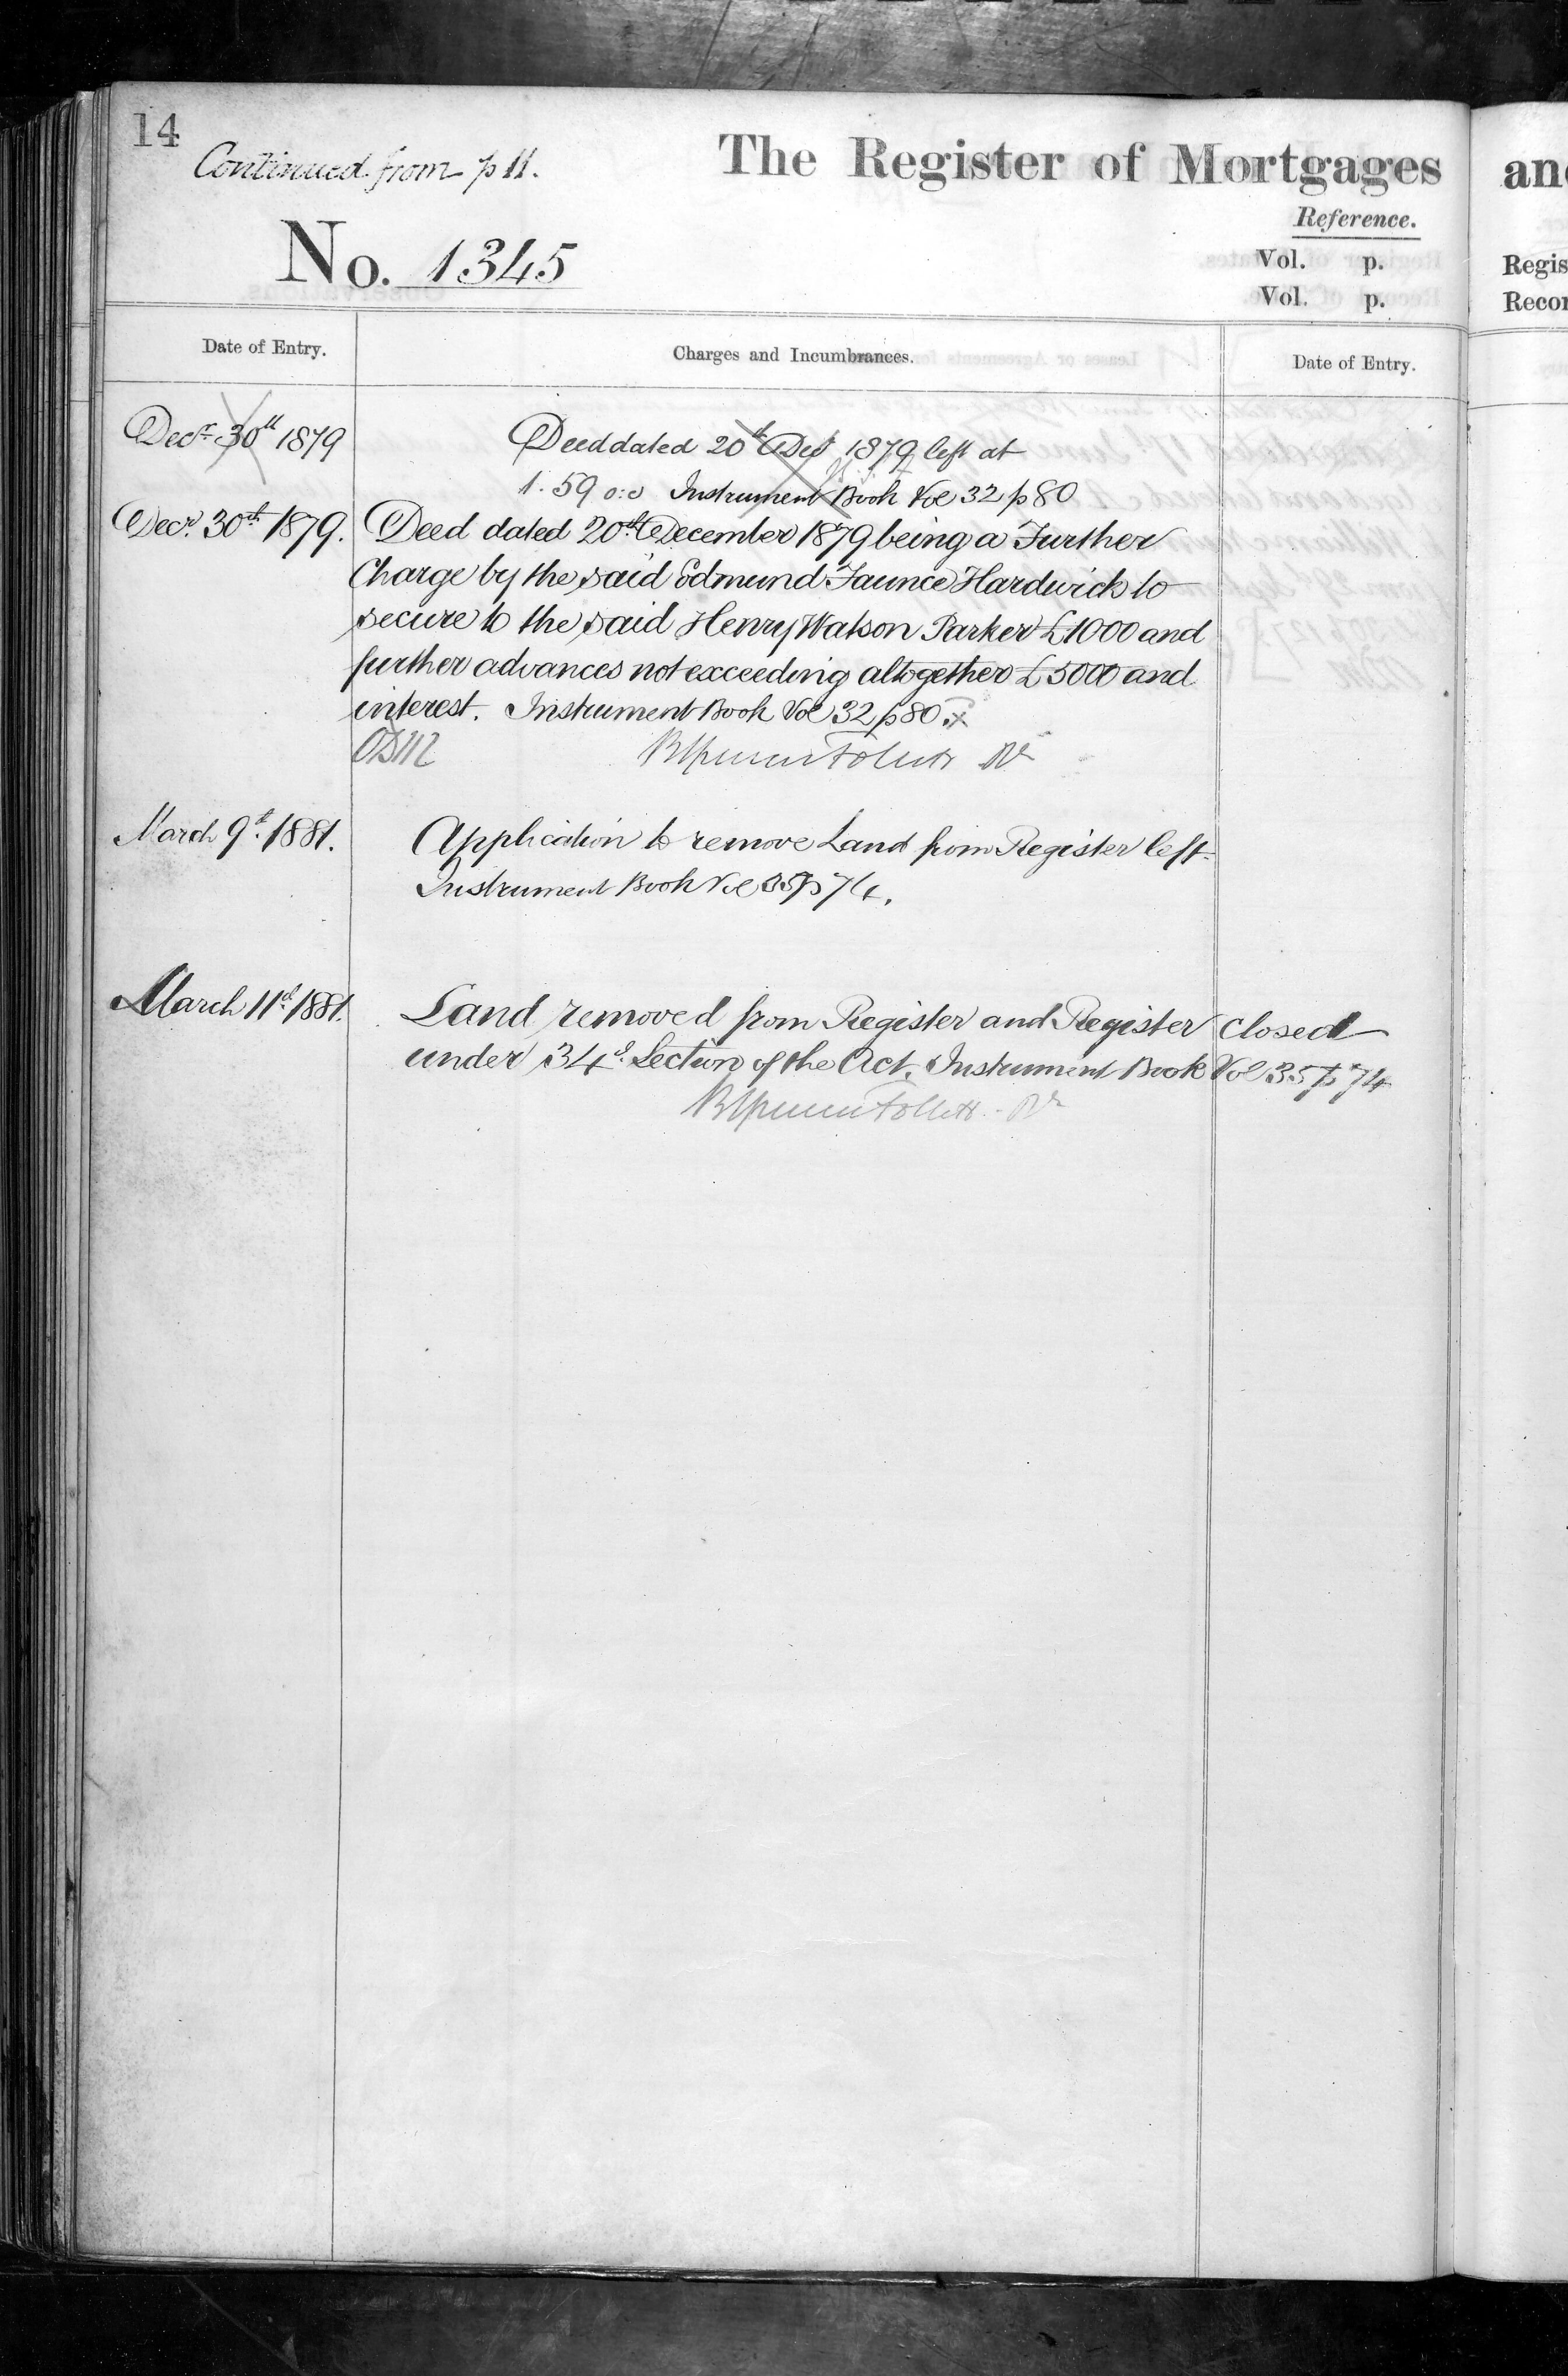 14
Continued from p 11.
The Register of Mortgages
and
Reference.
No. 1345
Vol. p.
Vol. p.
Date of Entry.
Charges and Incumbrances.
Date of Entry.
Decr 30th 1879
Deed dated 20th Decr 1879 left at
1.59 o:c Instrument Book Vol 32 p 80
Decr 30th 1879.
Deed dated 20th December 1879 being a Further
Charge by the said Edmund Faunce Hardwick to
secure to the said Henry Watson Parker £1000 and
further advances not exceeding altogether £5000 and
interest. Instrument Book Vol 32 p 80.
Follett
March 9th 1881.
Application to remove Land from Register left
Instrument Book Vol 35 p 74.
March 11th 1881.
Land removed from Register and Register closed
under 34th Section of the Act. Instrument Book Vol 35 p 74
Follett